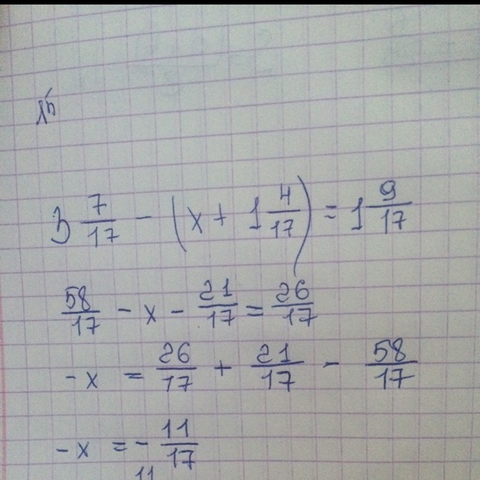 3 7/17 - (x + 1 4/17) = 1 9/17
58/17 - x - 21/17 = 26/17
-x = 26/17 + 21/17 - 58/17
-x = - 11/17
11